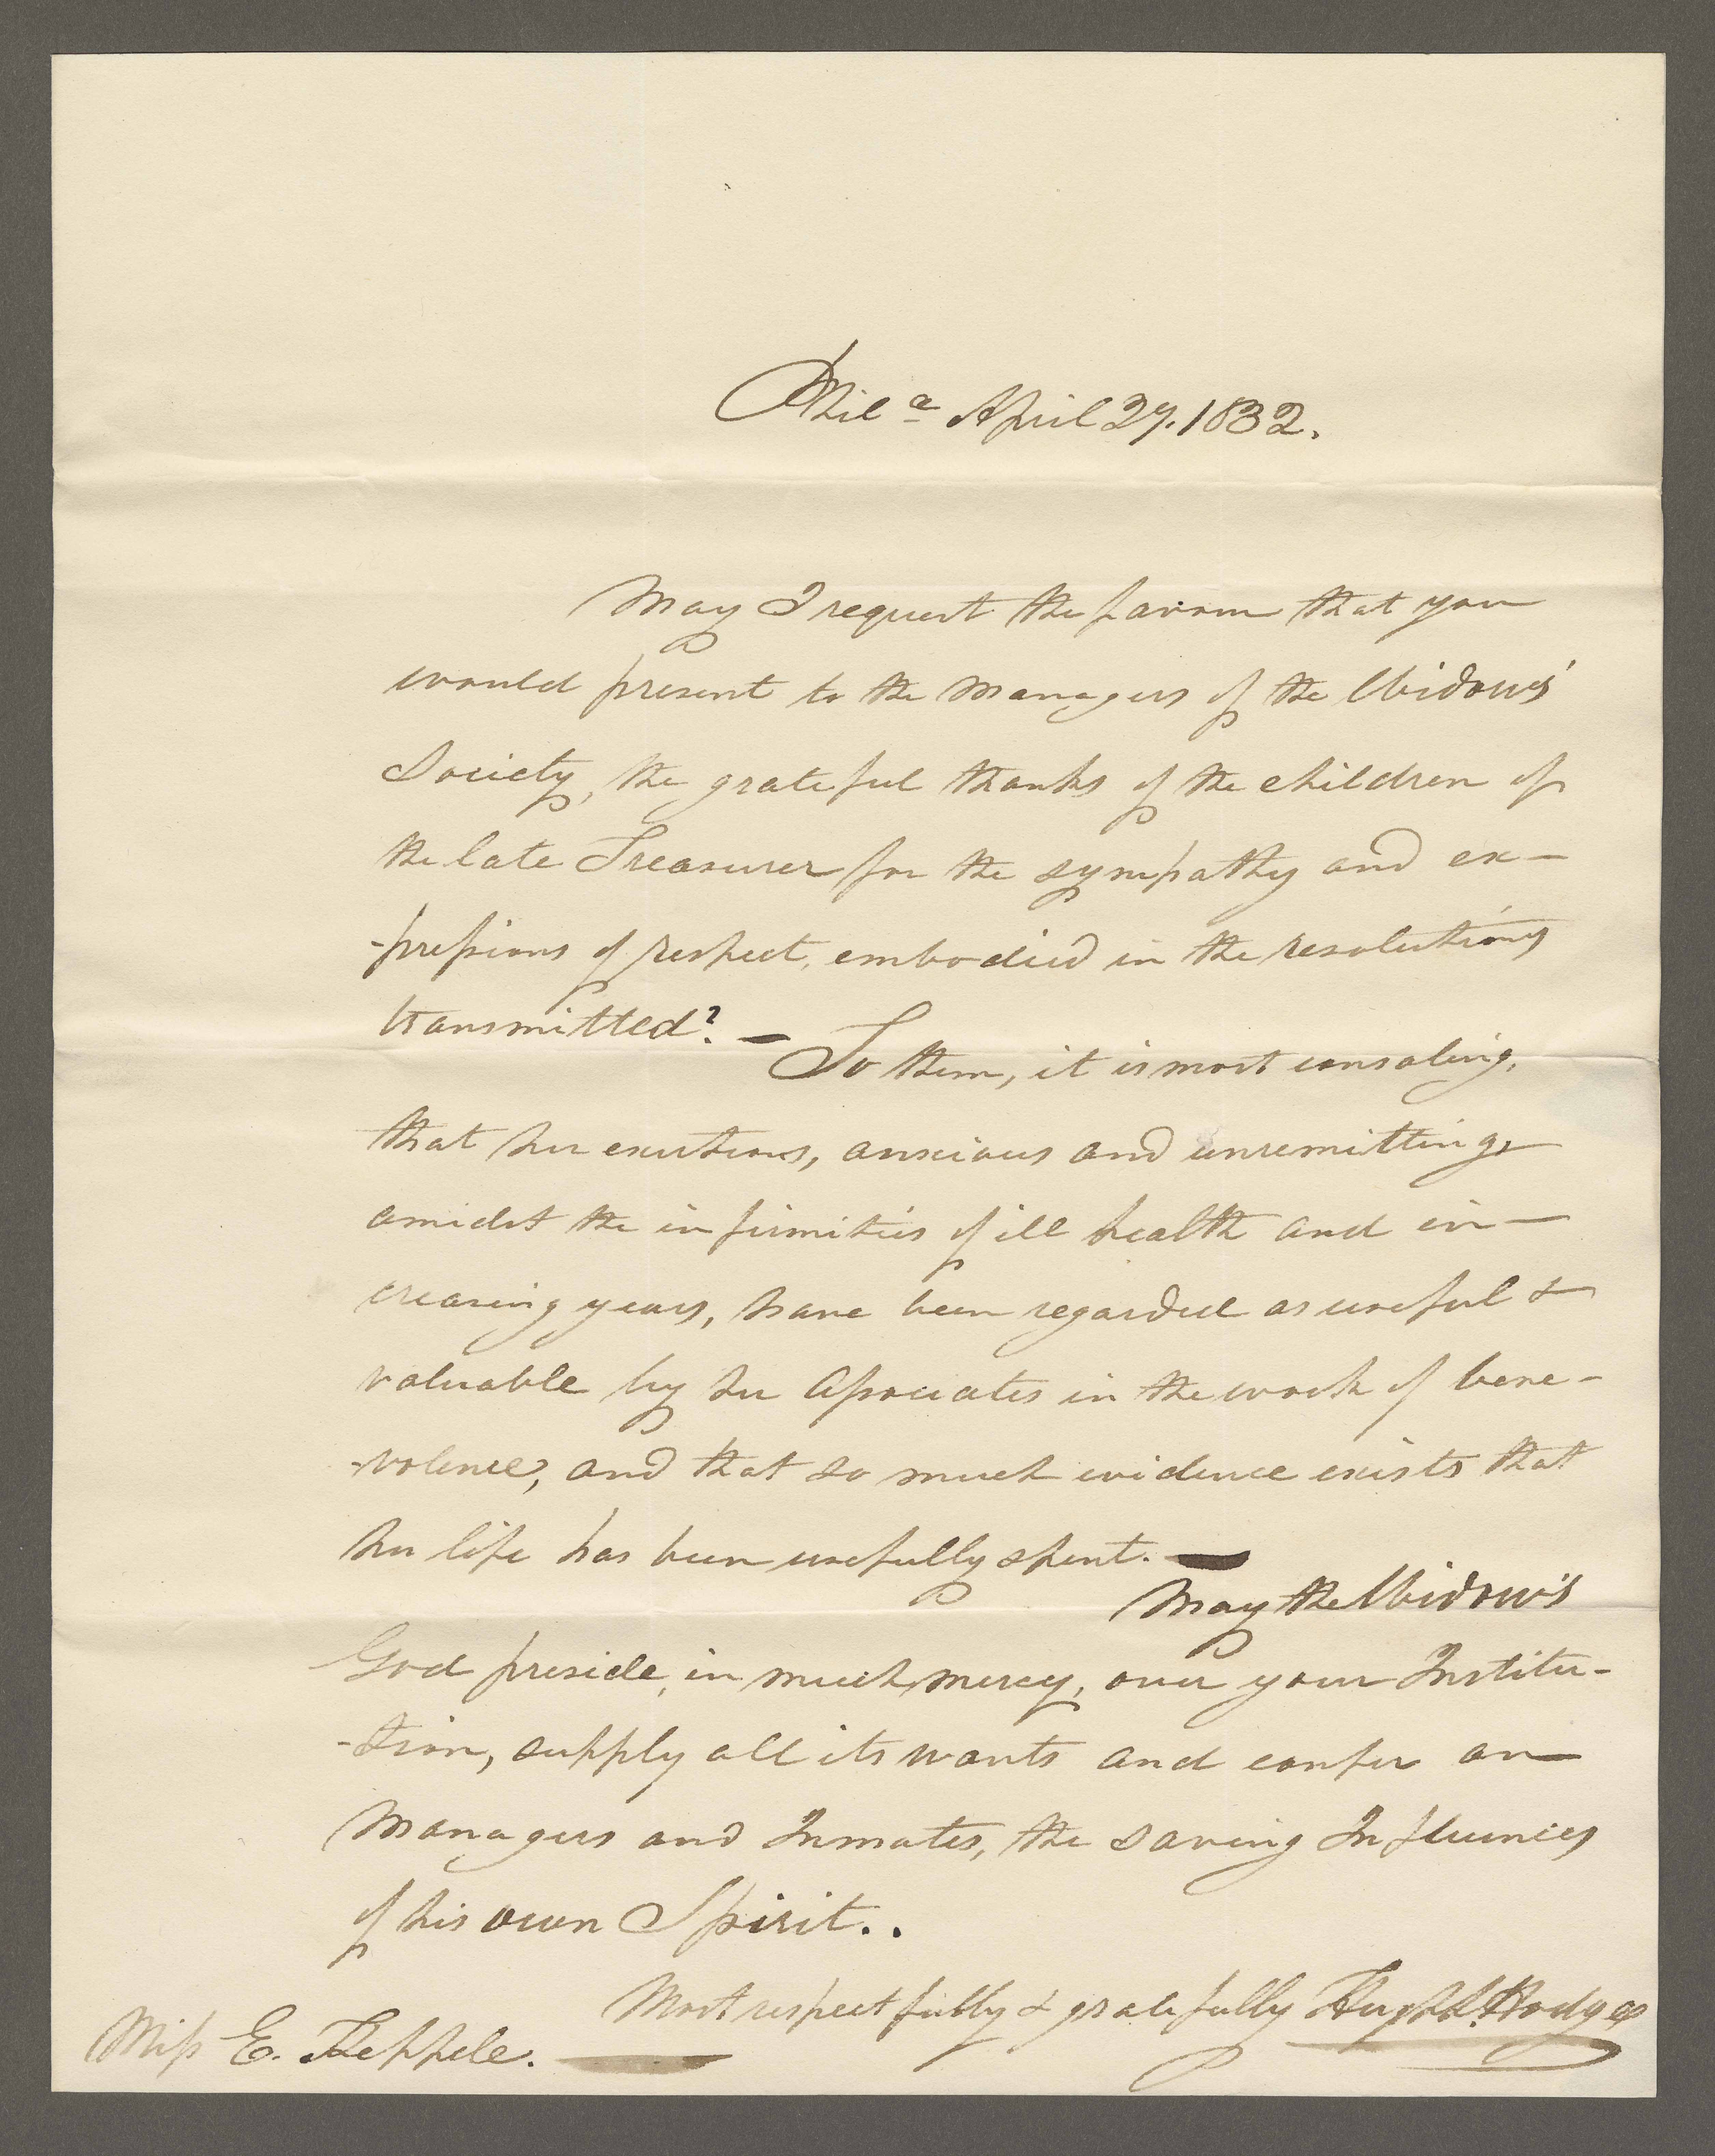 Phila April 27. 1832.
May I request the favour that you
would present to the Managers of the Widows'
Society, the grateful thanks of the children of
the late Treasurer for the sympathy and ex-
-pressions of respect, embodied in the resolutions
transmitted? —
To them, it is most consoling,
that her exertions, anxious and unremitting,
amidst the infirmities of ill health and in-
creasing years, have been regarded as useful &
valuable by her Associates in the work of bene-
-volence, and that so much evidence exists that
her life has been usefully spent. —
May the Widow's
God preside, in much mercy, over your Institu-
-tion, supply all its wants and confer on
Managers and Inmates, the saving Influences
of his own Spirit..
Most respectfully & gratefully Hugh L. Hodge
Miss E. Keppele.